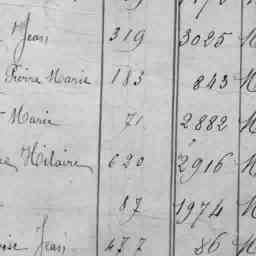 Jean 319 3025 M
Pierre Marie 183 843 M
Marie 71 2882 M
Hilaire 620 2916 M
87 1974 M
Jean 477 86 M